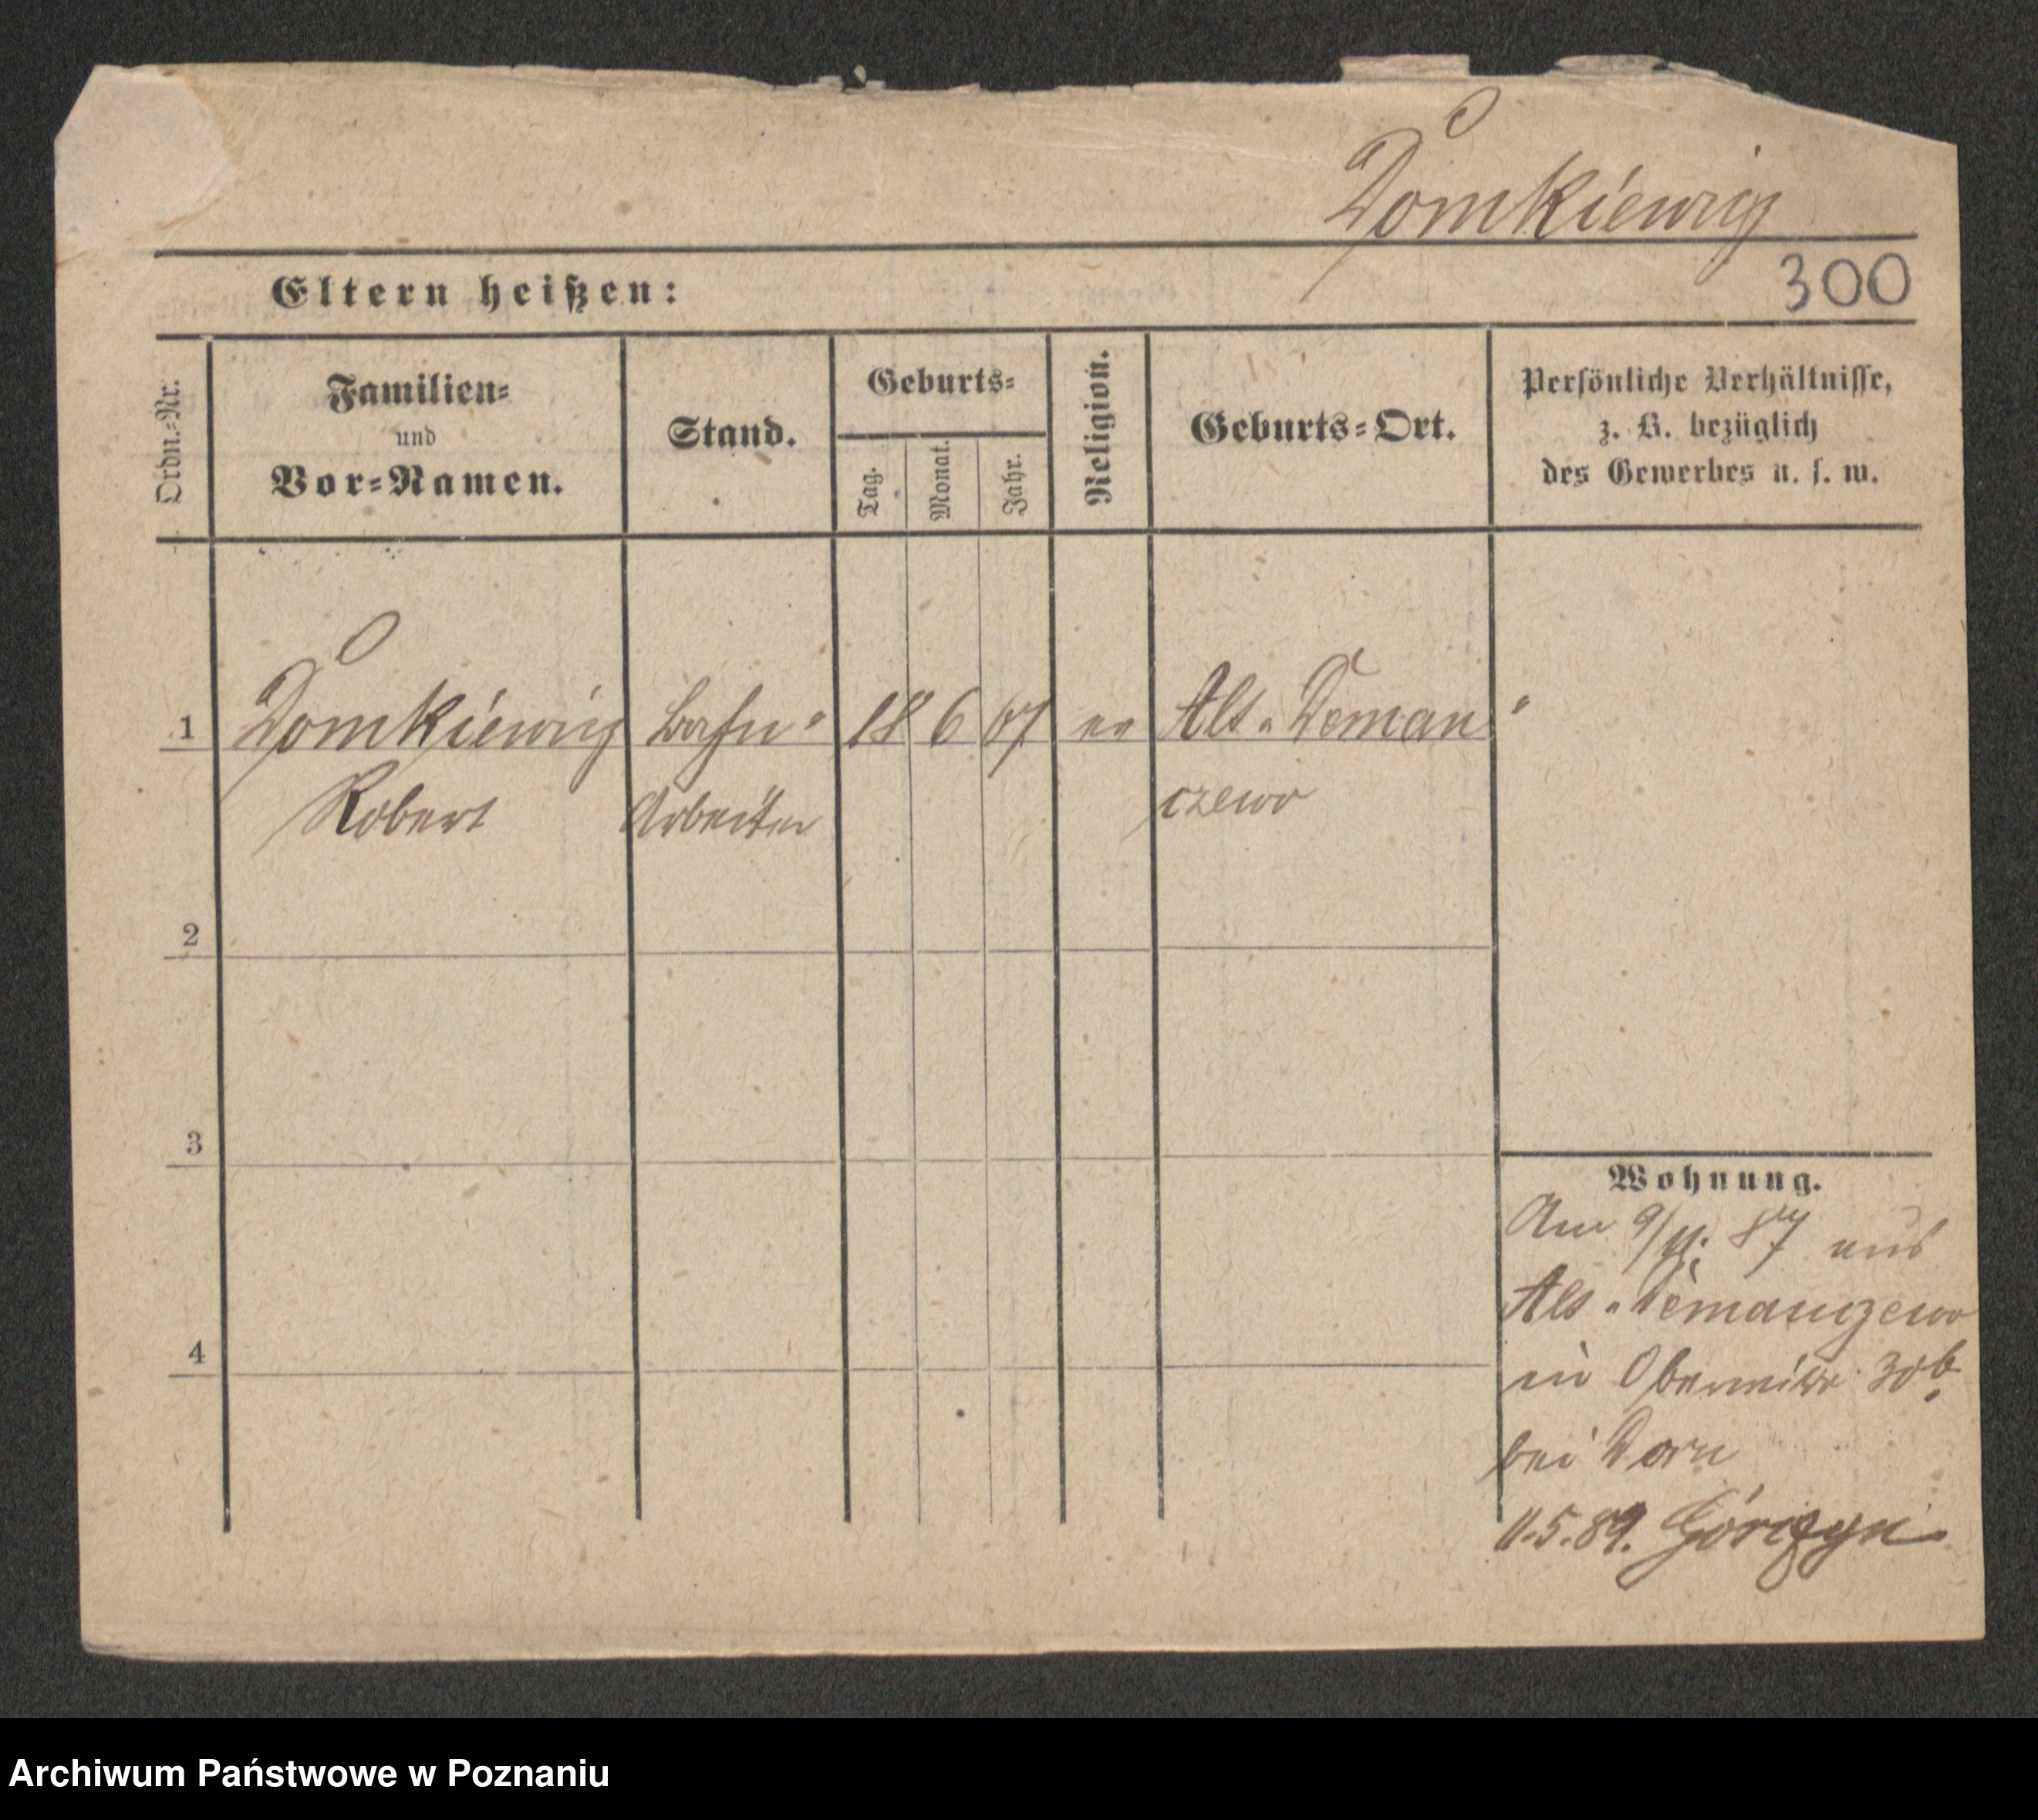 Domkiewicz
Eltern heißen:
300
Ordn.-Nr.
Familien-
und
Vor-Namen.
Stand.
Geburts-
Tag.
Monat.
Jahr.
Religion.
Geburts-Ort.
Persönliche Verhältnisse,
z. B. bezüglich
des Gewerbes u. s. w.
1 Domkiewicz Bahn- 18 6 67 ev Alt-Deman-
Robert Arbeiter czewo
2
3
4
Wohnung.
Am 9/11. 87 aus
Alt-Demanczewo
in 30b.
bei Dorn
11.5.89. Górczyn
Archiwum Państwowe w Poznaniu